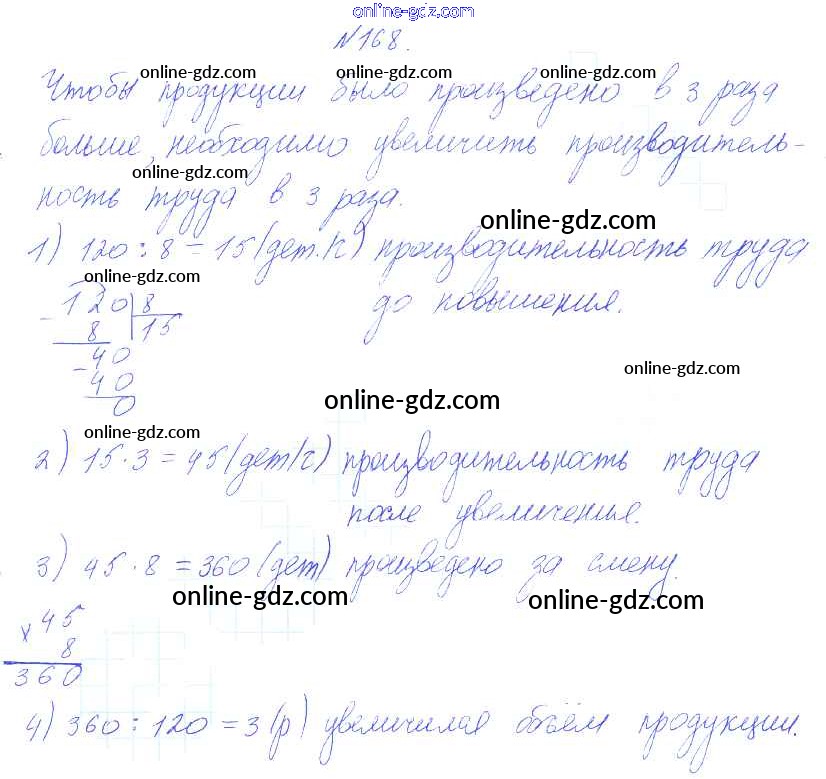 online-gdz.com
№168.
online-gdz.com online-gdz.com online-gdz.com
Чтобы продукции было произведено в 3 раза
больше, необходимо увеличить производитель-
online-gdz.com
ность труда в 3 раза.
online-gdz.com
1) 120 : 8 = 15 (дет./ч) производительность труда
до повышения.
online-gdz.com
- 120 | 8
8 | 15
- 40
40
0
online-gdz.com
online-gdz.com
online-gdz.com
2) 15 · 3 = 45 (дет/ч) производительность труда
после увеличения.
3) 45 · 8 = 360 (дет) произведено за смену.
online-gdz.com online-gdz.com
x 45
8
360
4) 360 : 120 = 3 (р) увеличился объём продукции.